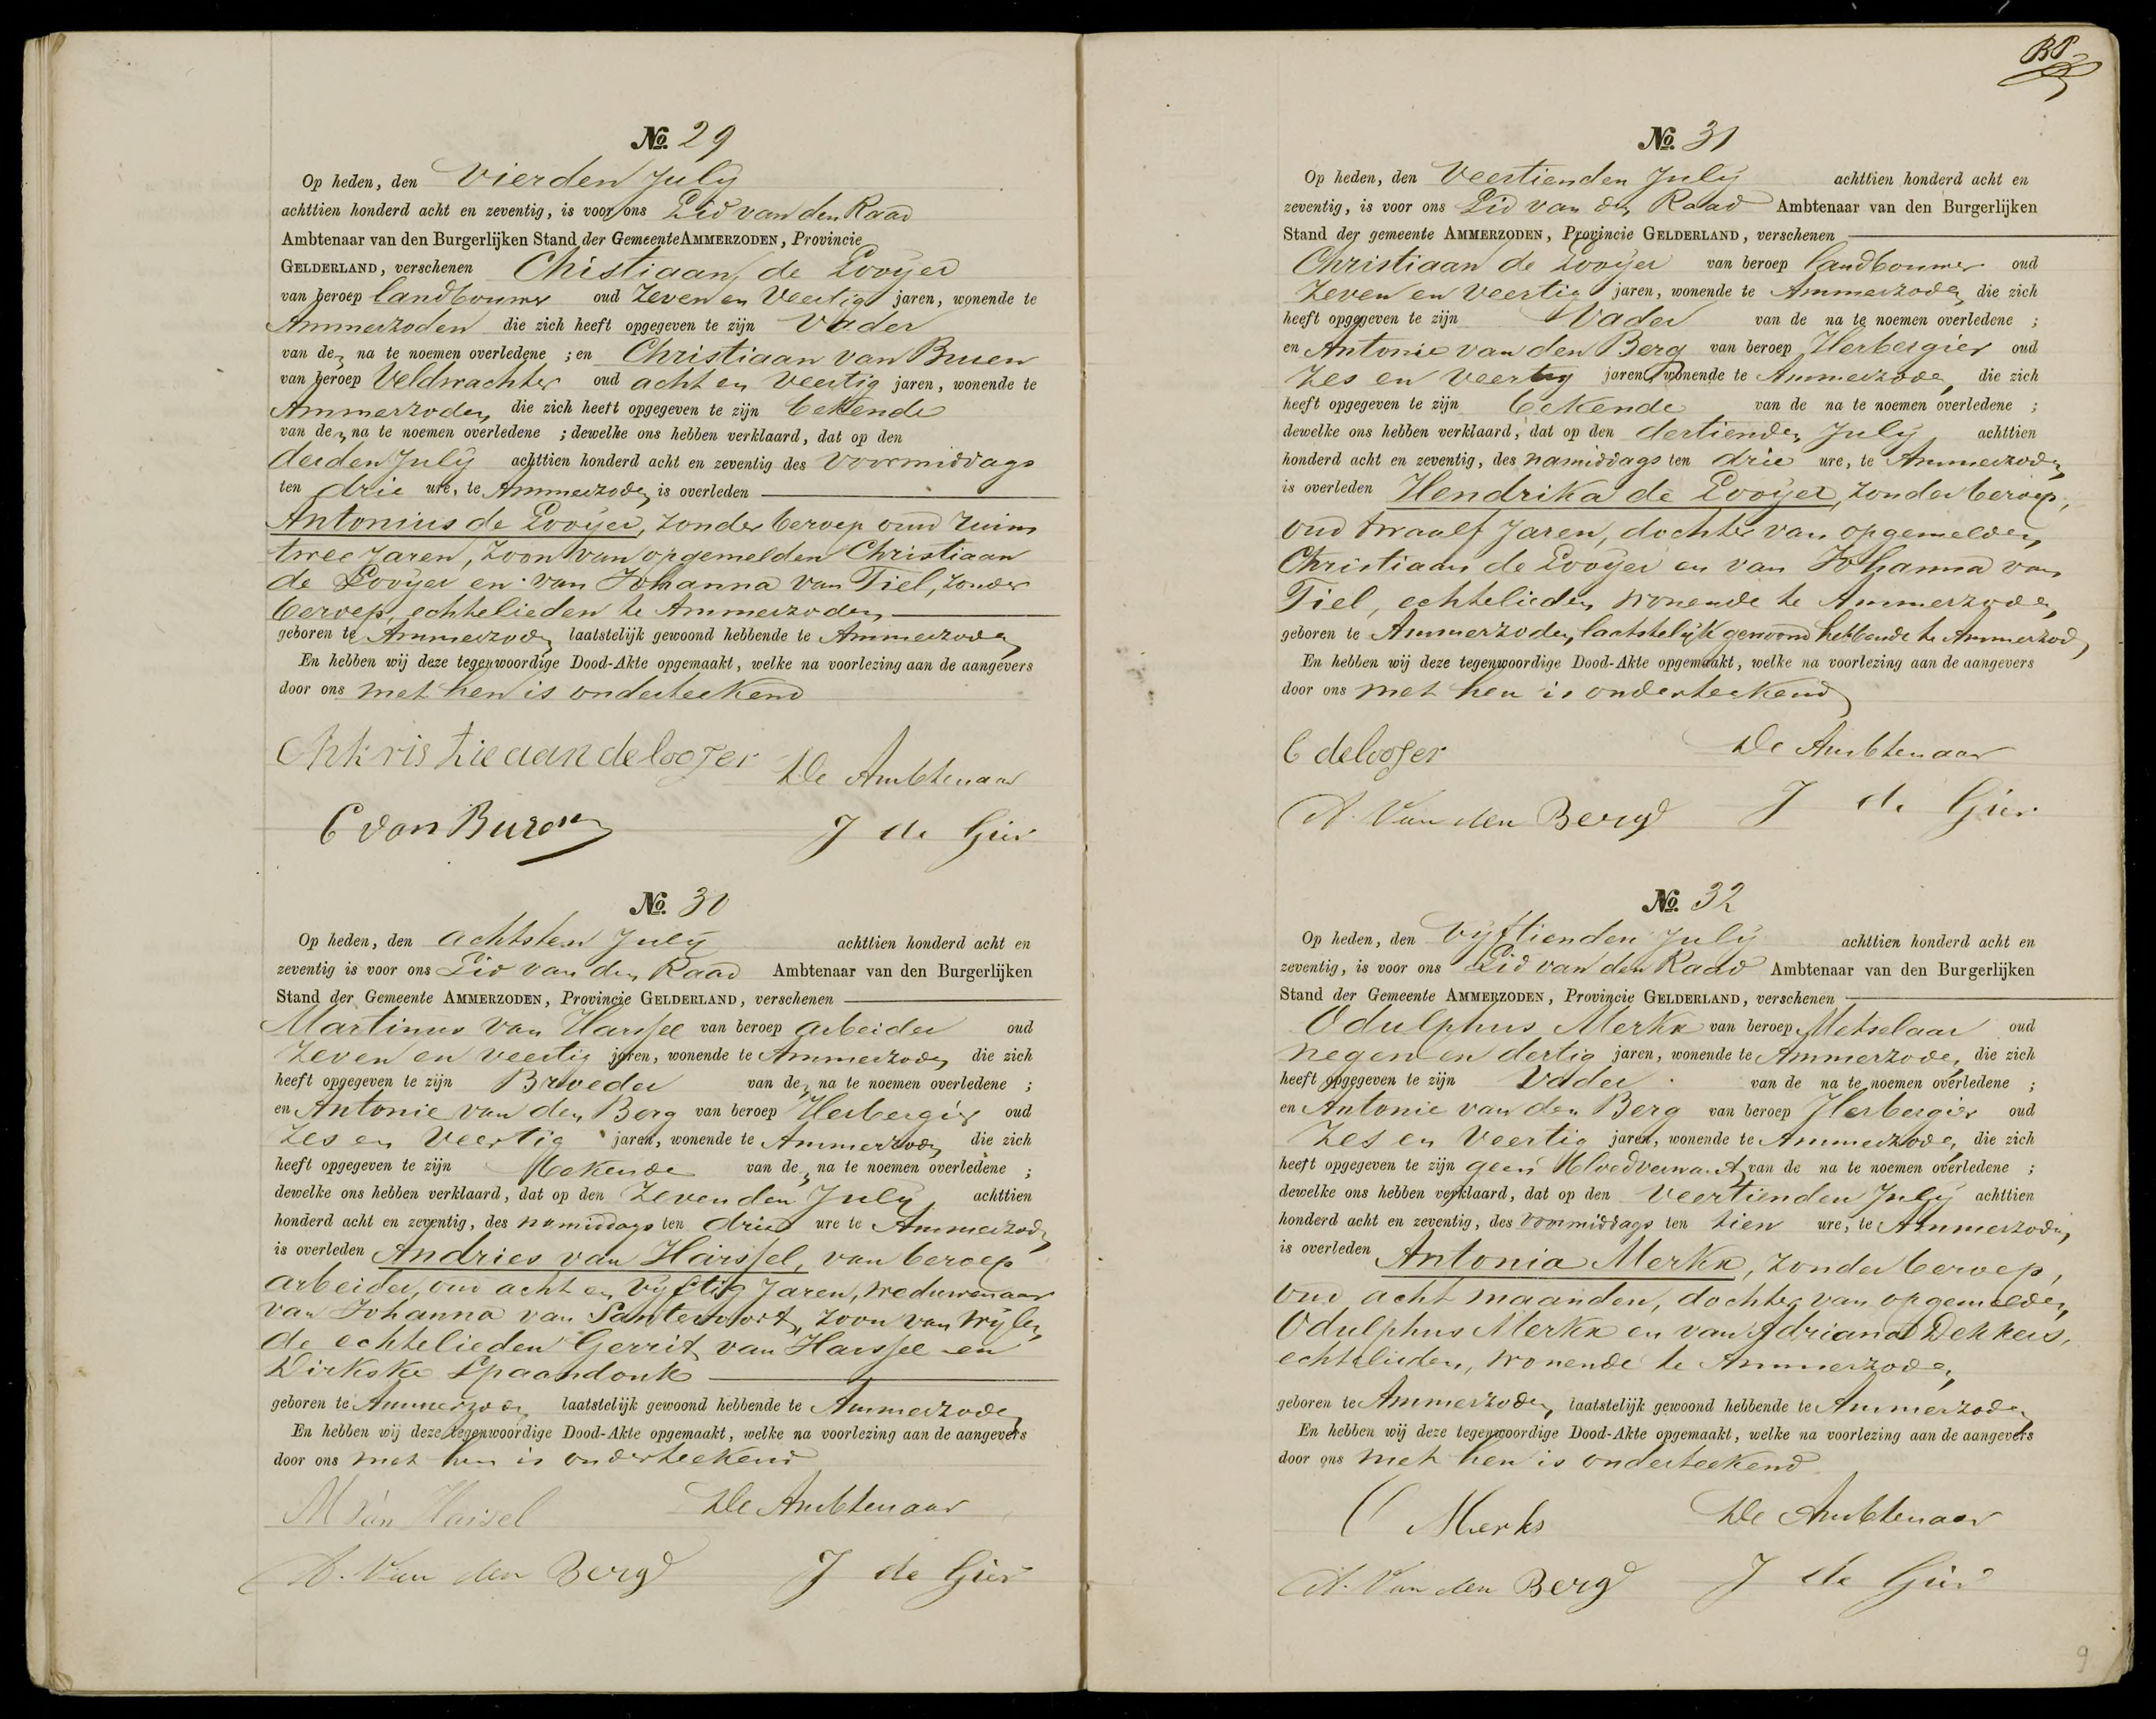 No. 29
Op heden, den Vierden July
achttien honderd acht en zeventig, is voor ons Lid van den Raad
Ambtenaar van den Burgerlijken Stand der Gemeente AMMERZODEN, Provincie
GELDERLAND, verschenen Chistiaan de Looyer
van beroep landbouwer oud Zeven en Veertig jaren, wonende te
Ammerzoden die zich heeft opgegeven te zijn Vader
van den na te noemen overledene ; en Christiaan van Buren
van beroep Veldwachter oud acht en Veertig jaren, wonende te
Ammerzoden die zich heeft opgegeven te zijn bekende
van den na te noemen overledene ; dewelke ons hebben verklaard, dat op den
derden July achttien honderd acht en zeventig des Voormiddags
ten drie ure, te Ammerzoden is overleden
Antonius de Looyer, zonder beroep oud ruim
twee Jaren, Zoon van opgemelden Christiaan
de Looyer en van Johanna van Tiel, zonder
beroep, echtelieden te Ammerzoden
geboren te Ammerzoden laatstelijk gewoond hebbende te Ammerzoden
En hebben wij deze tegenwoordige Dood-Akte opgemaakt, welke na voorlezing aan de aangevers
door ons met hen is onderteekend
Chhristieaan de looJer De Ambtenaar
C van Buren J de Gier
No. 30
Op heden, den achtsten July achttien honderd acht en
zeventig is voor ons Lid van den Raad Ambtenaar van den Burgerlijken
Stand der Gemeente AMMERZODEN, Provincie GELDERLAND, verschenen
Martinus van Harssel van beroep arbeider oud
Zeven en veertig jaren, wonende te Ammerzoden die zich
heeft opgegeven te zijn Broeder van den na te noemen overledene ;
en Antonie van den Berg van beroep Herbergier oud
Zes en Veertig jaren, wonende te Ammerzoden die zich
heeft opgegeven te zijn Bekende van den na te noemen overledene ;
dewelke ons hebben verklaard, dat op den Zevenden July achttien
honderd acht en zeventig, des namiddags ten drie ure te Ammerzoden
is overleden Andries van Harssel, van beroep
arbeider, oud acht en Vyftig Jaren, weduwenaar
van Johanna van Santervoort, zoon van wylen
de echtelieden Gerrit van Harssel en
Dirkske Spaandonk
geboren te Ammerzoden laatstelijk gewoond hebbende te Ammerzoden
En hebben wij deze tegenwoordige Dood-Akte opgemaakt, welke na voorlezing aan de aangevers
door ons met hen is onderteekend
M Van Haisel De Ambtenaar
A. Van den Berg J de Gier
No. 31
Op heden, den Veertienden July achttien honderd acht en
zeventig, is voor ons Lid van den Raad Ambtenaar van den Burgerlijken
Stand der gemeente AMMERZODEN, Provincie GELDERLAND, verschenen
Christiaan de Looyer van beroep landbouwer oud
Zeven en Veertig jaren, wonende te Ammerzoden die zich
heeft opgegeven te zijn Vader van de na te noemen overledene ;
en Antonie van den Berg van beroep Herbergier oud
Zes en Veertig jaren, wonende te Ammerzoden die zich
heeft opgegeven te zijn bekende van de na te noemen overledene ;
dewelke ons hebben verklaard, dat op den dertienden July achttien
honderd acht en zeventig, des namiddags ten drie ure, te Ammerzoden
is overleden Hendrika de Looyer, zonder beroep,
oud twaalf Jaren, dochter van opgemelden
Christiaan de Looyer en van Johanna van
Tiel, echtelieden wonende te Ammerzoden
geboren te Ammerzoden, laatstelijk gewoond hebbende te Ammerzoden
En hebben wij deze tegenwoordige Dood-Akte opgemaakt, welke na voorlezing aan de aangevers
door ons met hen is onderteekend
C de looJer De Ambtenaar
A. Van den Berg J de Gier
No. 32
Op heden, den Vyftienden July achttien honderd acht en
zeventig, is voor ons Lid van den Raad Ambtenaar van den Burgerlijken
Stand der Gemeente AMMERZODEN, Provincie GELDERLAND, verschenen
Odulphus Merkx van beroep Metselaar oud
negen en dertig jaren, wonende te Ammerzoden, die zich
heeft opgegeven te zijn Vader van de na te noemen overledene ;
en Antonie van den Berg van beroep Herbergier oud
Zes en Veertig jaren, wonende te Ammerzoden die zich
heeft opgegeven te zijn geen Bloedverwant van de na te noemen overledene ;
dewelke ons hebben verklaard, dat op den Veertienden July achttien
honderd acht en zeventig, des voormiddags ten tien ure, te Ammerzoden
is overleden Antonia Merkx, zonder beroep,
oud acht maanden, dochter van opgemelden
Odulphus Merkx en van Adriana Dekkers,
echtelieden, wonende te Ammerzoden
geboren te Ammerzoden, laatstelijk gewoond hebbende te Ammerzoden
En hebben wij deze tegenwoordige Dood-Akte opgemaakt, welke na voorlezing aan de aangevers
door ons met hen is onderteekend
Merks De Ambtenaar
A. Van den Berg J de Gier
9